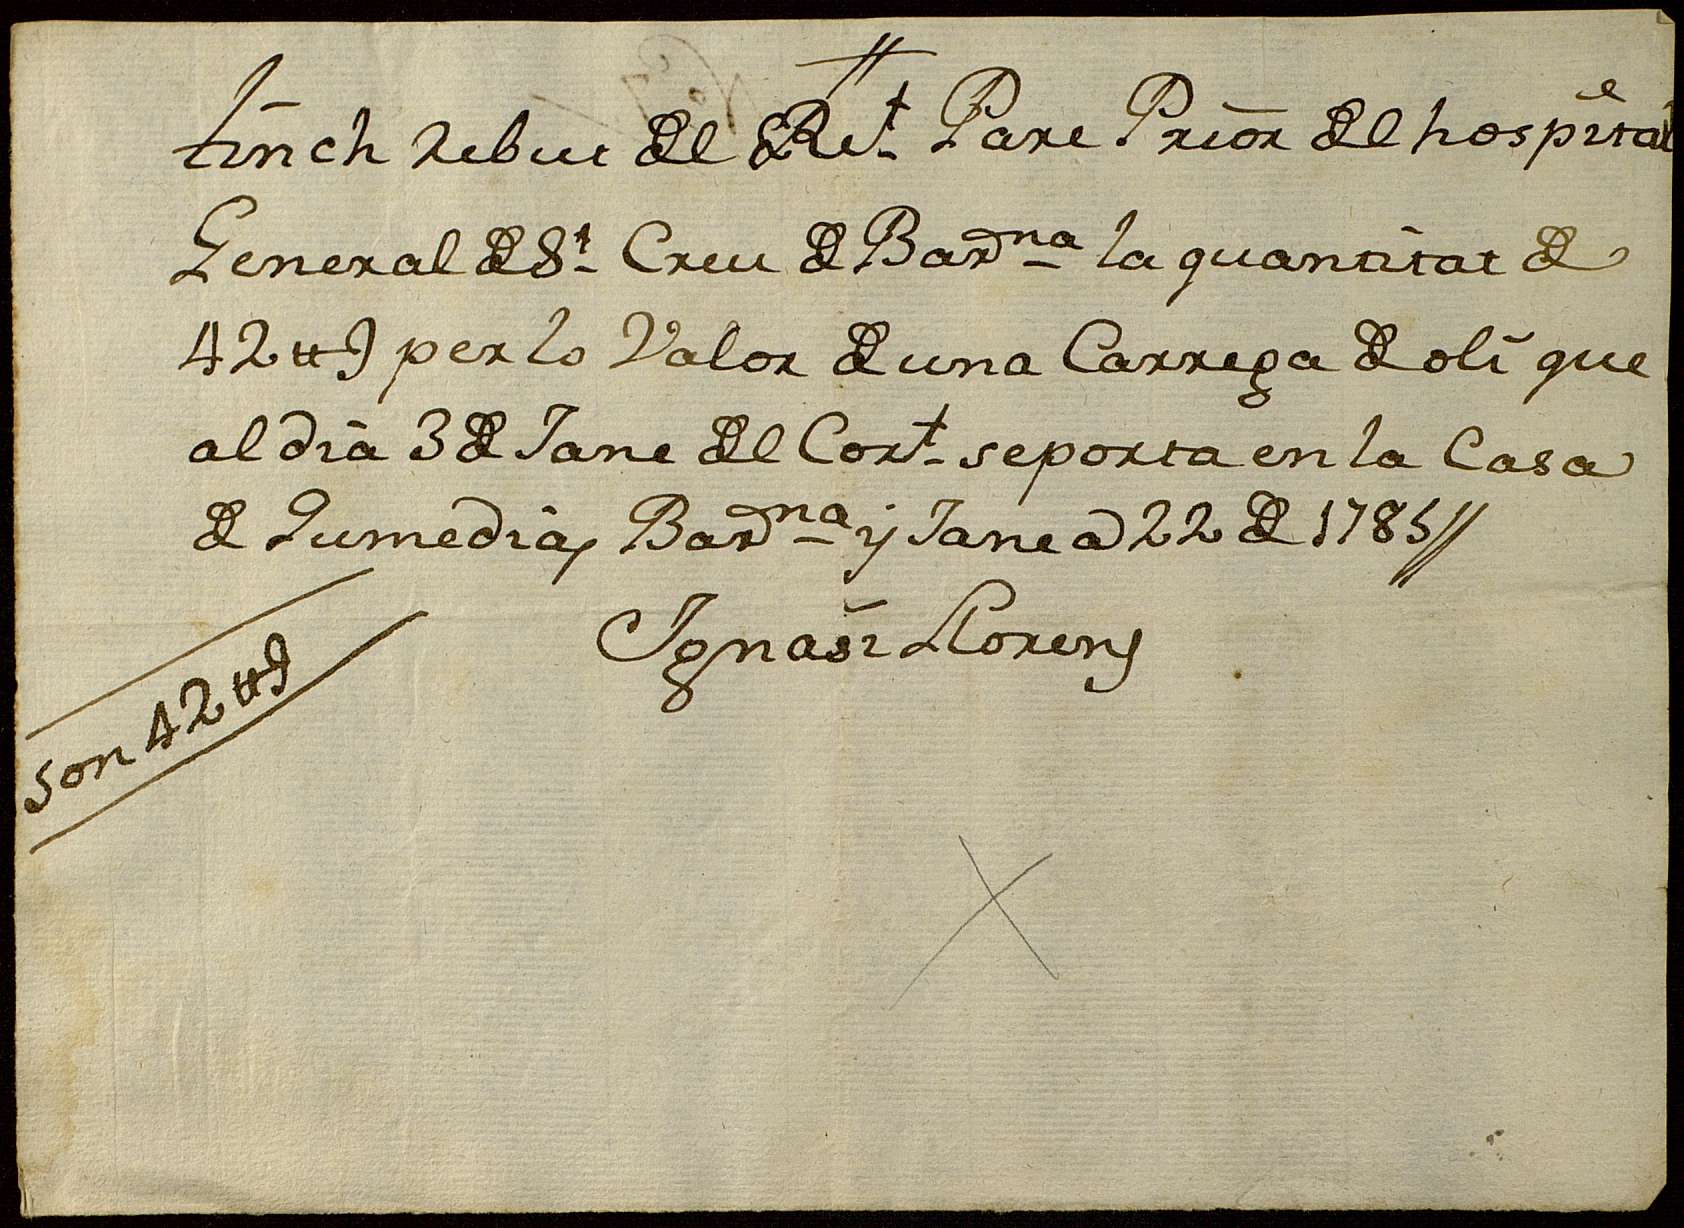 tinch rebut del Rt. Pare Prior del hospital
General de St. Creu de Barna la quantitat de
42 ₶ per lo Valor de una Carrega de oli que
al dia 3 de Jane del Cort. se porta en la Casa
de Gumedia, Barna y Jane a 22 de 1785//
Ignasi Llorens
son 42 ₶